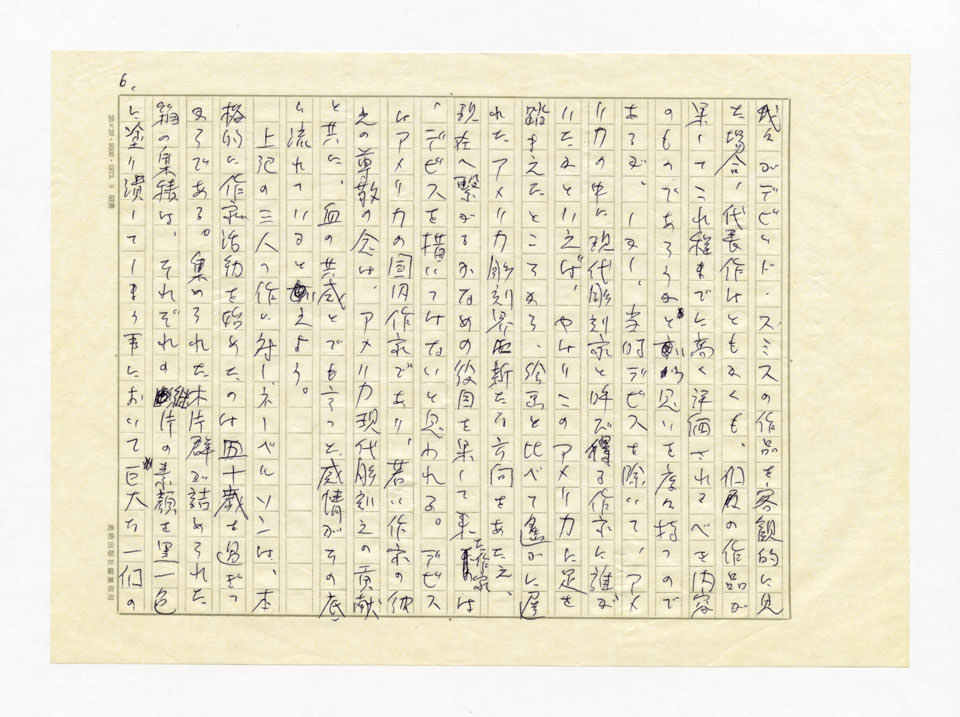 6.
我々がデビッド・スミスの作品を客観的に見
た場合、代表作はともかくも、個々の作品が
果してこれ程までに高く評価されるべき内容
のものであろうかと思いを度々持つので
あるが、しかし、当時デビスを除いて、アメ
リカの中に現代彫刻家と呼び得る作家に誰が
いたかといえば、やはりこのアメリカに足を
踏まえたところから、絵画と比べて遙かに遅
れたアメリカ彫刻界に斬たる方向をあたえ、
現在へ繋がるかなめの役目を果して来た作家は
、デビスを措いてはないと思われる。デビス
はアメリカの国内作家であり、若い作家の彼
への尊敬の念は、アメリカ現代彫刻への貢献
と共に、血の共感とでも言う感情がその底
に流れていると言えよう。
上記の三人の作に対しネーベルソンは、本
格的に作家活動を始めたのは五十歳を過ぎて
からである。集められた木片群が詰められた
箱の集積は、それぞれの木片の素顔を黒一色
に塗り潰してしまう事において巨大な一個の
20×20・8000・1973.